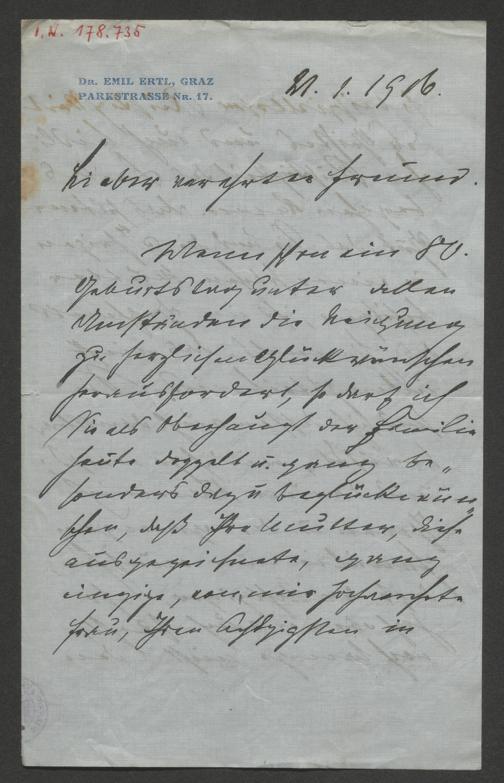 I.N. 178.735
DR. EMIL ERTL, GRAZ
PARKSTRASSE NR. 17.
21. 1. 1906.
Lieber verehrter Freund.
Wenn schon ein 80.
Geburtstag unter allen
Umständen die Neigung
zu herzlichen Glückwünschen
herausfordert, so darf ich
Sie als Oberhaupt der Familie
heute doppelt u. ganz be„
sonders dazu beglückwün„
schen, daß Ihre Mutter, diese
ausgezeichnete, ganz
einzige, von mir hochverehrte
Frau, Ihren Achtzigsten in